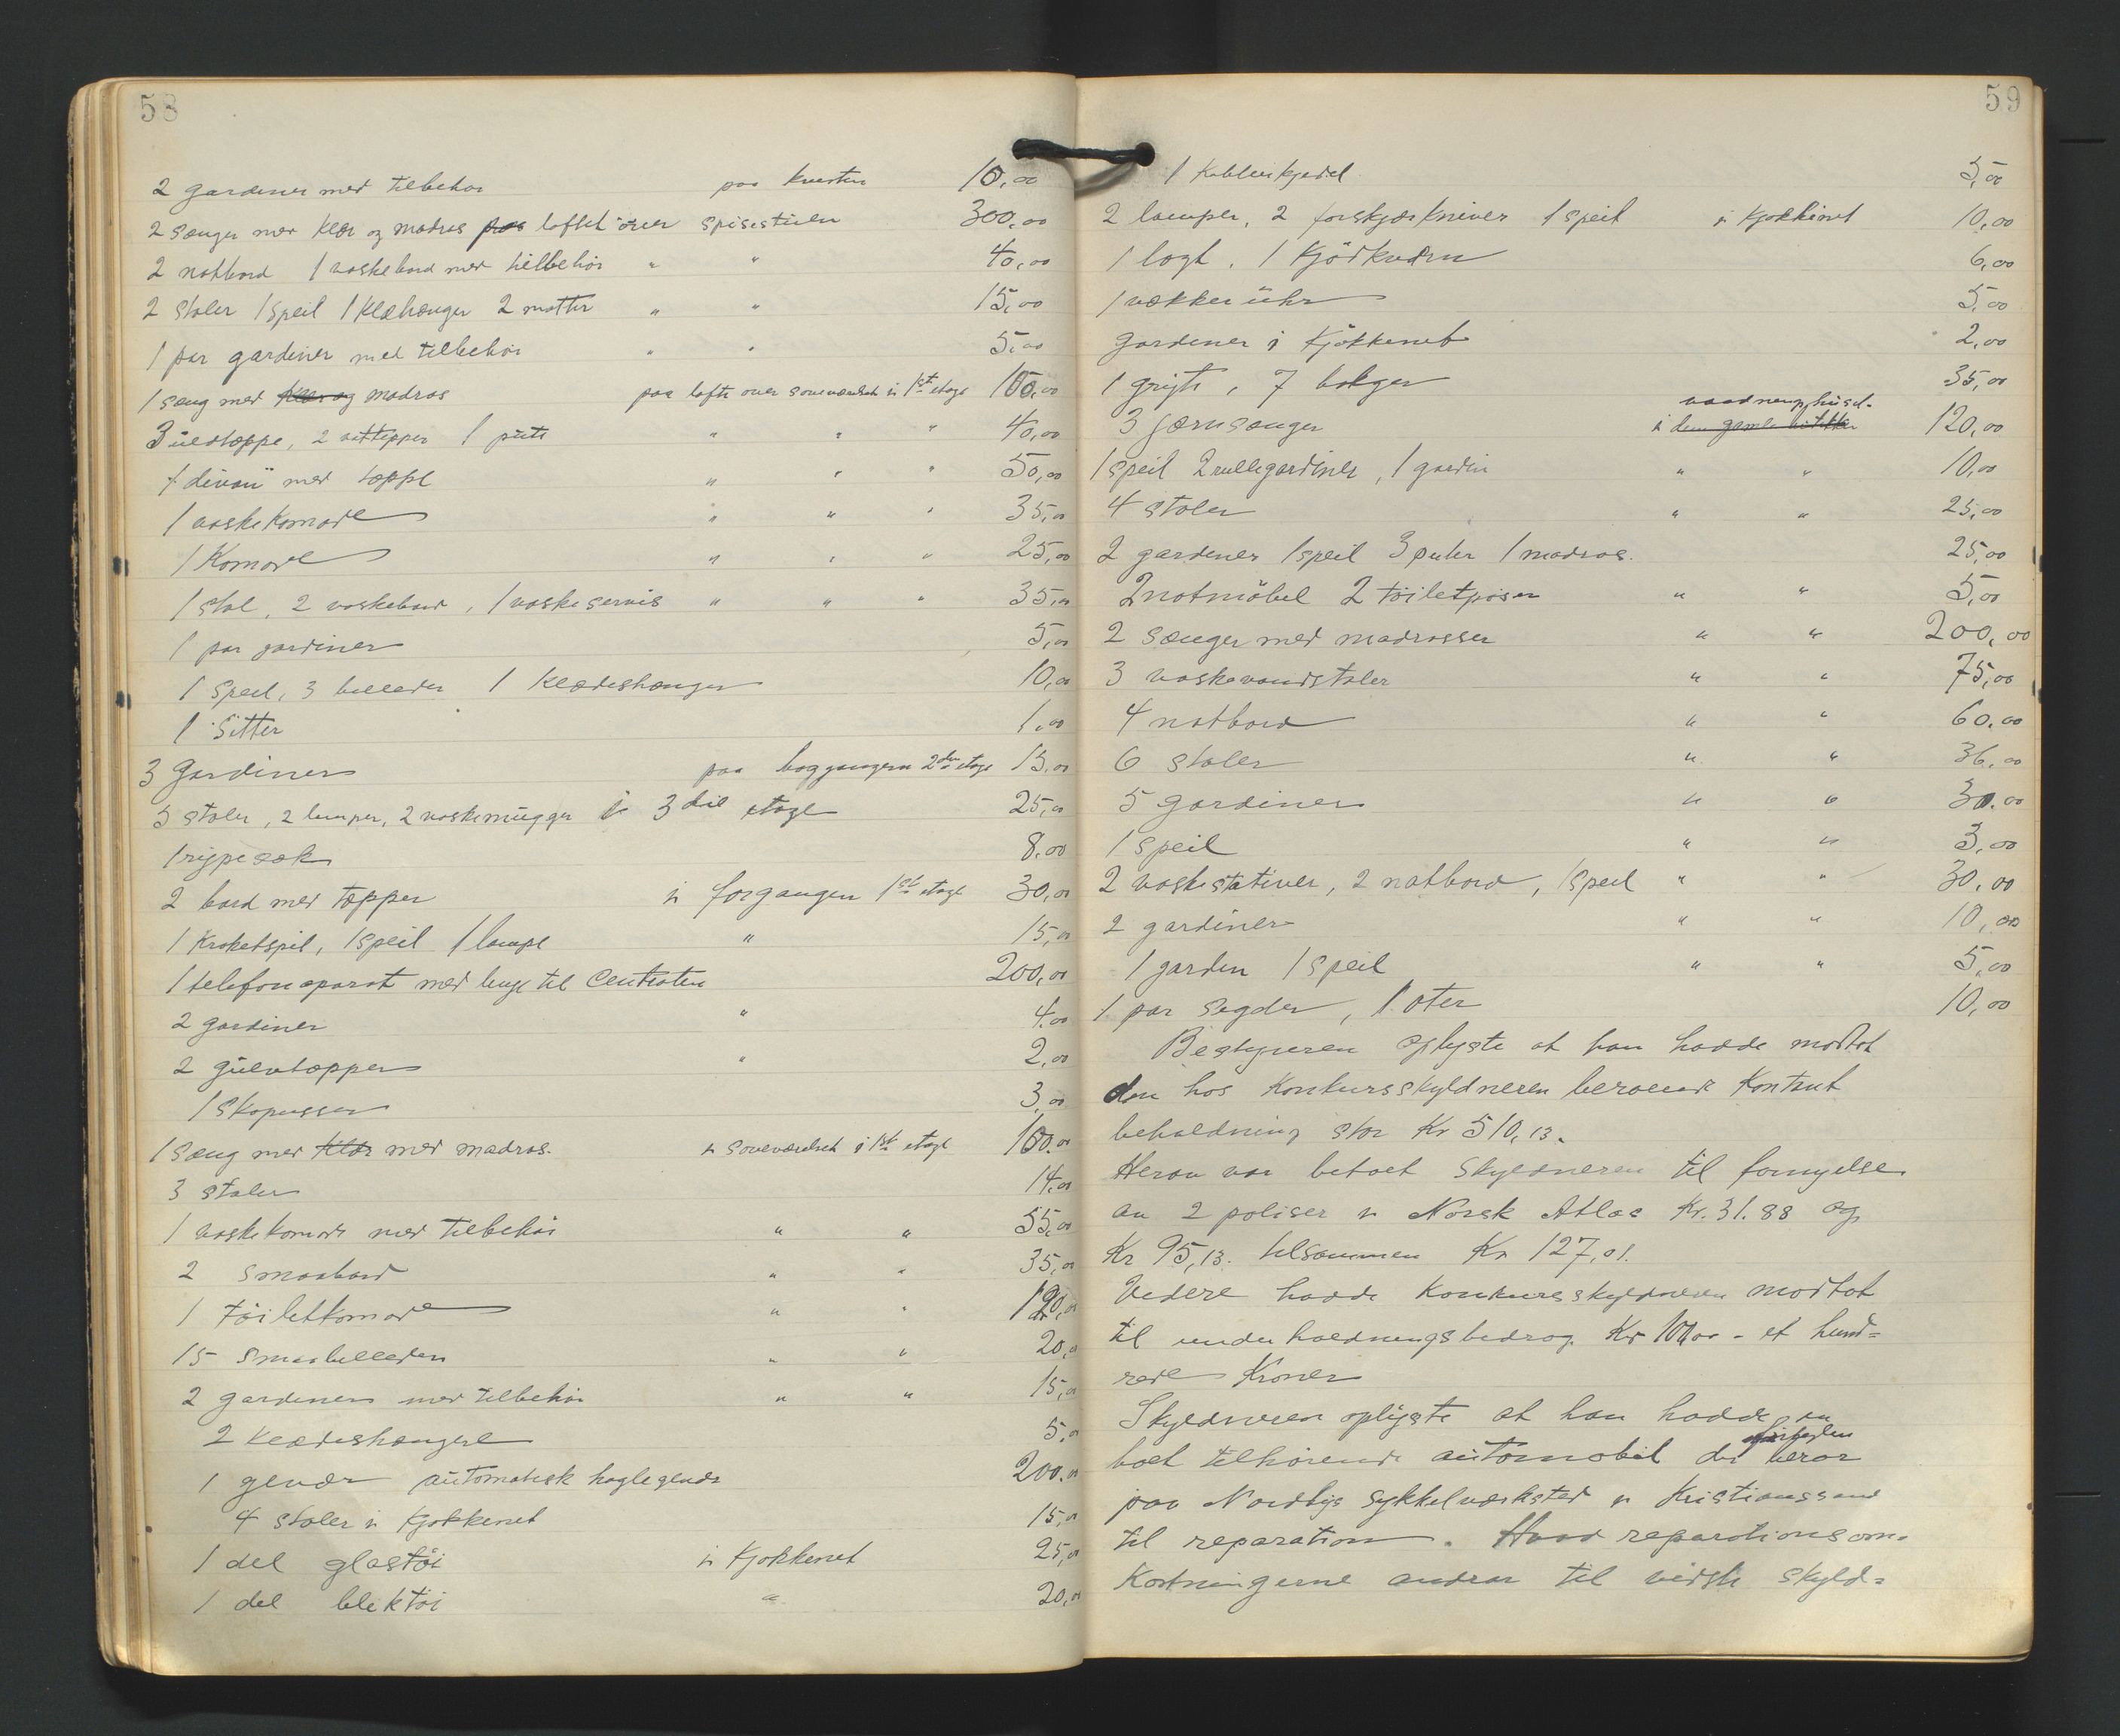 58
2 gardiner med tilbehör paa kvisten 10,00
2 senger med klær og madras paa loftet över spisestuen 300,00
2 natbord 1 vaskebord med tilbehör " " 40,00
2 stoler 1 speil 1 klæhænger 2 matter " " 15,00
1 par gardiner med tilbehör " " 5,00
1 seng med klær og madras paa loftet over soveværelset i 1st etage 100,00
3 uldtæppe, 2 vattepper 1 pute " " " 40,00
1 divan med tæppe " " " 50,00
1 vaskekomode " " " 35,00
1 Komode " " " 25,00
1 stol, 2 vaskebord, 1 vaskeservis " " " 35,00
1 par gardiner 5,00
1 speil, 3 billeder 1 klædeshænger 10,00
1 Sitter 1,00
3 Gardiner paa baggangen 2den etage 15,00
5 stoler, 2 lamper, 2 vaskemugger i 3die etage 25,00
1 rypesæk 8,00
2 bord med tæpper i forgangen 1st etage 30,00
1 Kroketspil, 1 speil 1 lampe " 15,00
1 telefonaparat med linje til Centralen 200,00
2 gardiner " 4,00
2 gulvtæpper " 2,00
1 skopusser 3,00
1 seng med klær med madras. i soveværelset i 1st etage 100,00
3 stoler 14,00
1 vaskekomode med tilbehör " " 55,00
2 smaabord " " 35,00
1 töiletkomode " " 120,00
15 smaabilleder " " 20,00
2 gardiner med tilbehör " " 15,00
2 klædeshængere 5,00
1 gevær automatisk haglegevær 200,00
4 stoler i kjøkkenet 15,00
1 del glastöi i kjøkkenet 25,00
1 del bliktöi " 20,00
59
1 Kobberkjedel 5,00
2 lamper, 2 forskjærkniver 1 speil i kjøkkenet 10,00
1 lagt, 1 Kjödkværn 6,00
1 vækker uhr 5,00
gardener i Kjökkenet 2,00
1 gryte, 7 balger 35,00
vaaningshuset
3 jernsenger i den gamle 120,00
1 speil 2 rullegardiner, 1 gardin " " 10,00
4 stoler " " 25,00
2 gardener 1 speil 3 puter 1 madras. 25,00
2 natmöbel 2 töiletposer " " 5,00
2 senger med madrasser " " 200,00
3 vaskevandstoler " " 75,00
4 natbord " " 60,00
6 stoler " " 36,00
5 gardiner " " 30,00
1 speil " " 3,00
2 vaskestativer, 2 natbord, 1 speil " " 30,00
2 gardiner " " 10,00
1 garden 1 speil " " 5,00
1 par segder, 1 oter 10,00
Bestyreren oplyste at han hadde mottat
den hos Konkursskyldneren beroende Kontant
beholdning stor Kr 510,13.
Herav var betalt skyldneren til fornyelse
av 2 poliser i Norsk Atlas Kr. 31.88 og
Kr 95,13. tilsammen Kr 127,01.
Videre hadde Konkursskyldneren mottat
til underholdningsbedrag Kr 100,00 - et hund=
rede Kroner
Skyldneren oplyste at han hadde en
boet tilhörende automobil der beror
paa Nordbys sykkelverksted i Kristianssand
til reparation. Hvad reparationsom=
kostningerne andrar til vidste skyld=